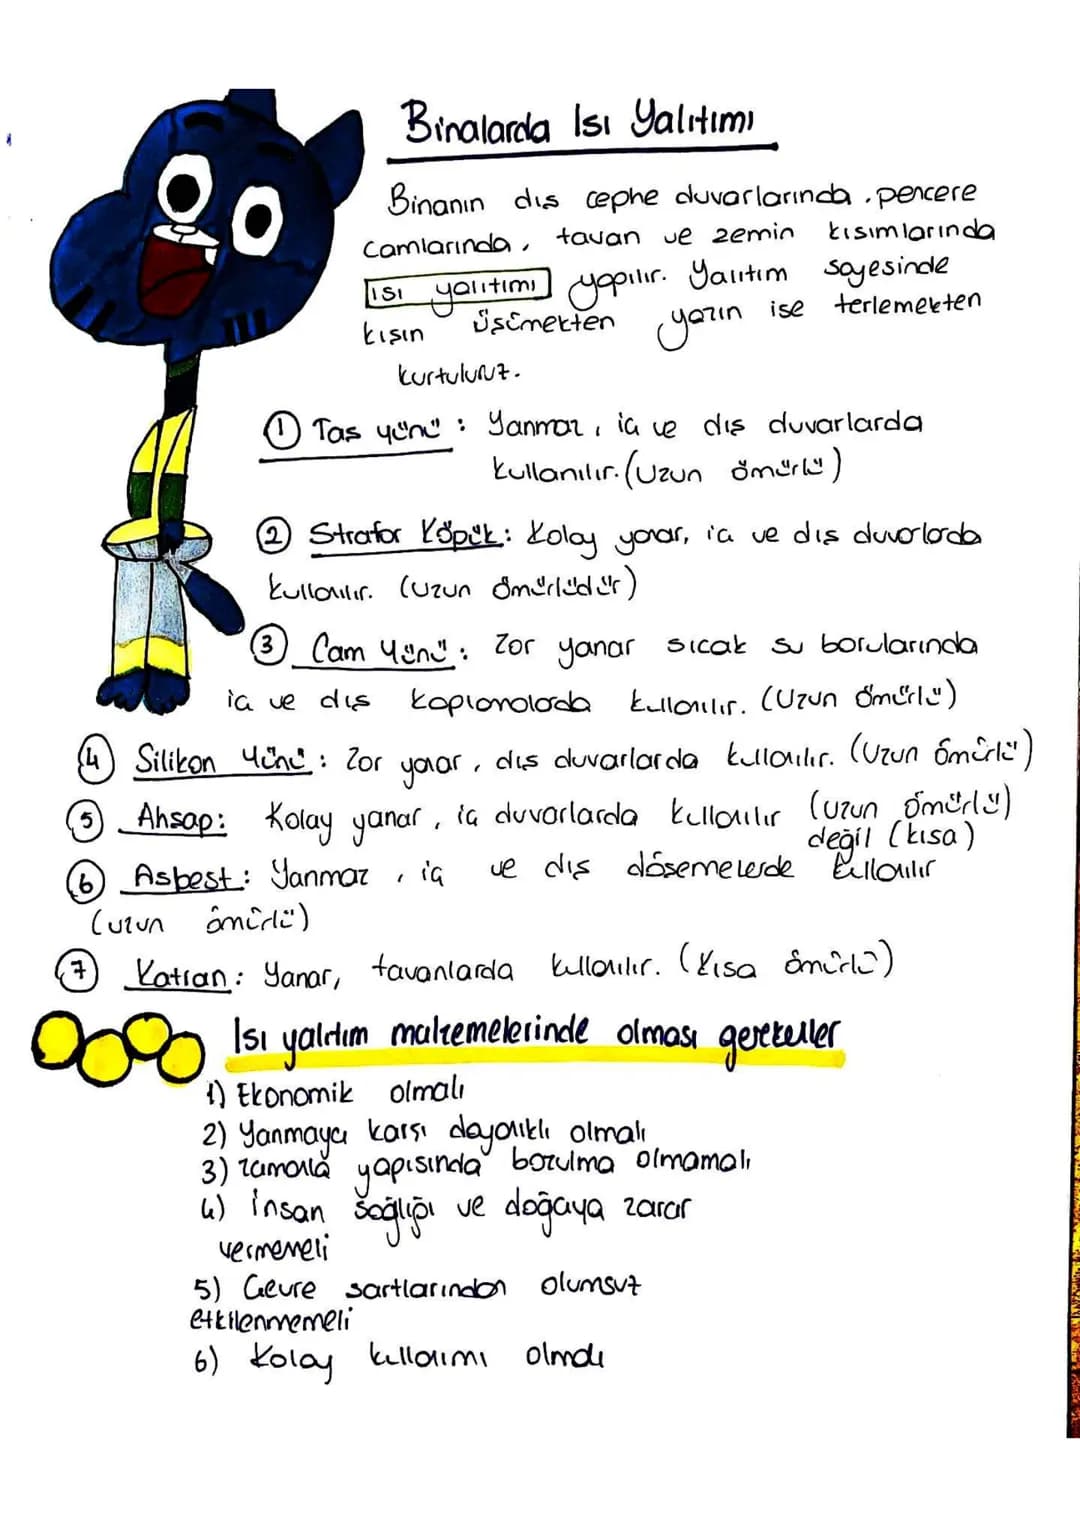 Binalarda Isı Yalıtımı
Binanın dış cephe duvarlarında, pencere
camlarında, tavan ve zemin kısımlarında
ısı yalıtımı yapılır. Yalıtım sayesinde
kışın üşümekten yazın ise terlemekten
kurtuluruz.
① Tas yünü : Yanmaz, iç ve dış duvarlarda
kullanılır. (Uzun ömürlü)
② Strafor Köpük : Kolay yanar, iç ve dış duvarlarda
kullanılır. (Uzun ömürlüdür)
③ Cam Yünü : Zor yanar sıcak su borularında
iç ve dış kaplamalarda kullanılır. (Uzun ömürlü)
④ Silikon Yünü : Zor yanar, dış duvarlarda kullanılır. (Uzun ömürlü)
⑤ Ahsap : Kolay yanar, iç duvarlarda kullanılır (uzun ömürlü)
değil (kısa)
⑥ Asbest : Yanmaz, iç ve dış dösemelerde kullanılır
(uzun ömürlü)
⑦ Katran : Yanar, tavanlarda kullanılır. (Kısa ömürlü)
Isı yalıtım malzemelerinde olması gerekenler
1) Ekonomik olmalı
2) Yanmaya karşı dayanıklı olmalı
3) zamanla yapısında bozulma olmamalı
4) insan sağlığı ve doğaya zarar
vermemeli
5) Çevre sartlarından olumsuz
etkilenmemeli
6) Kolay kullanımı olmalı